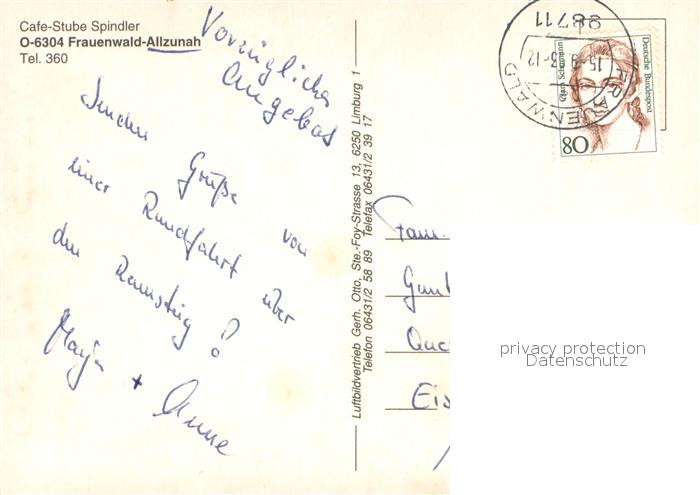 Cafe-Stube Spindler
O-6304 Frauenwald-Allzunah
Tel. 360
Vorzügliches
Angebot
Senden Grüße von
einer Rundfahrt über
den Rennsteig!
+ Anne
Luftbildvertrieb Gerh. Otto, Ste.-Foy-Strasse 13, 6250 Limburg 1
Telefon 06431/2 58 89 Telefax 06431/2 39 17
98711
FRAUENWALD
Deutsche Bundespost
80
Fam.
Eis
privacy protection
Datenschutz